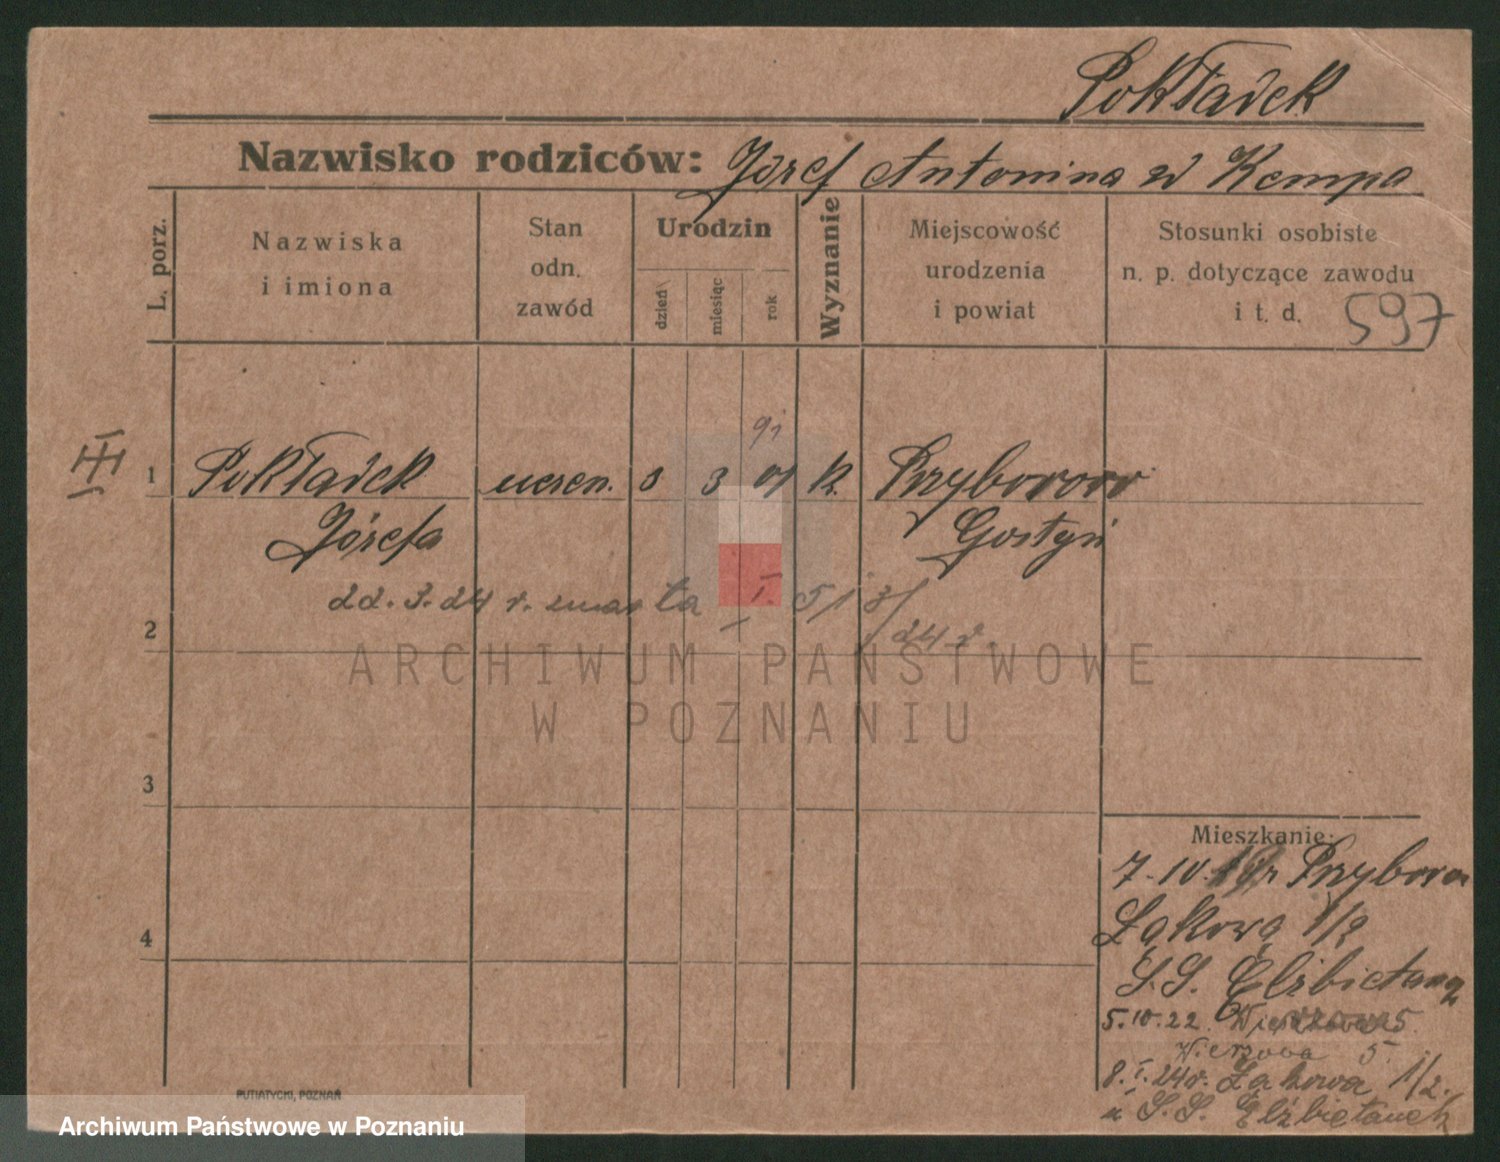 Pokładek
Nazwisko rodziców: Józef Antonina z Kempa
L. porz.
Nazwiska
i imiona
Stan
odn.
zawód
Urodzin
dzień
miesiąc
rok
Wyznanie
Miejscowość
urodzenia
i powiat
Stosunki osobiste
n. p. dotyczące zawodu
i t. d.
597
III
91
1 Pokładek uczen. 8 3 01 k. Przyborowo
Józefa Gostyń
22. 3. 24 r. umarła I. 513/
24 r.
2
3
4
Mieszkanie:
7. IV. 19 r Przyborow
Łąkowa 1/2
S.S. Elżbietanq
5. IV. 22.
Wierzowa 5.
8. I. 24 r. Łąkowa 1/2.
u S.S. Elżbietanek
PUTIATYCKI, POZNAŃ
ARCHIWUM PAŃSTWOWE
W POZNANIU
Archiwum Państwowe w Poznaniu